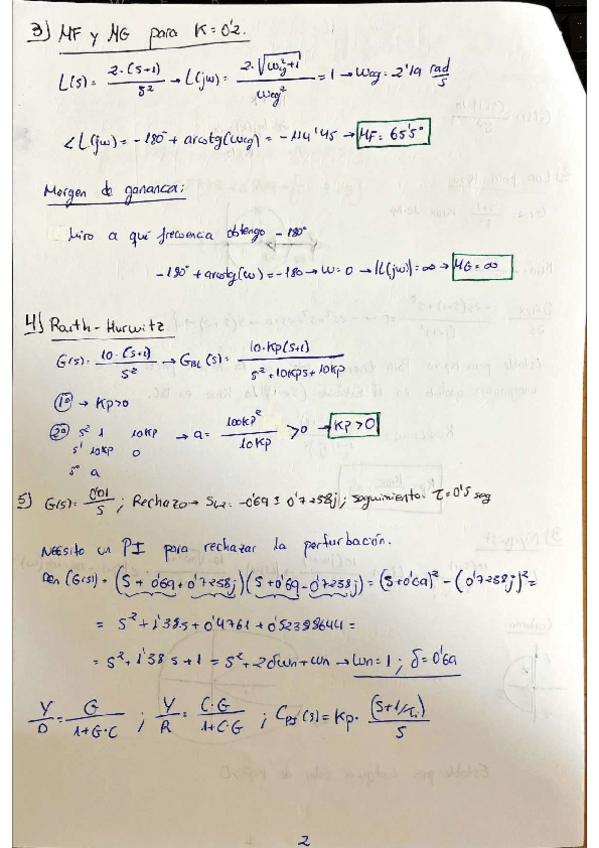 3) MF y MG para K=0'2.
L(s) = 2·(s+1)/s² → L(jω) = 2·√(ωcg²+1)/ωcg² = 1 → ωcg = 2'19 rad/s
∠L(jω) = -180° + arcotg(ωcg) = -114'45 → MF = 65'5°
Margen de ganancia:
Miro a qué frecuencia obtengo -180°
-180° + arcotg(ω) = -180 → ω = 0 → |L(jω)| = ∞ → MG = ∞
4) Routh-Hurwitz
G(s) = 10·(s+1)/s² → GBC(s) = 10·Kp(s+1)/(s²+10Kps+10Kp)
1º → Kp>0
2º s² 1 10Kp → a = 100Kp²/10Kp >0 → Kp>0
s¹ 10Kp 0
s⁰ a
5) G(s) = 0'01/s ; Rechazo → S1,2 = -0'69 ± 0'7258j ; Seguimiento: τ = 0'5 seg
Necesito un PI para rechazar la perturbación.
Den(G(s)) = (S+0'69+0'7258j)(S+0'69-0'7258j) = (S+0'69)² - (0'7258j)² =
= S² + 1'38s + 0'4761 + 0'52398644 =
= S² + 1'38s + 1 = S² + 2δωn + ωn → ωn = 1 ; δ = 0'69
Y/D = G/(1+G·C) ; Y/R = C·G/(1+C·G) ; CPI(s) = Kp·(S+1/τi)/S
2